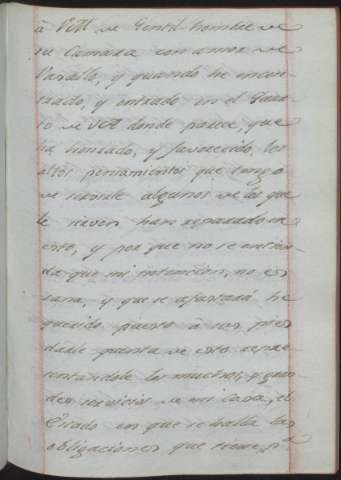 à VM de Gentil hombre de
su Camara con amor de
Vasallo, y quando he encon-
trado, y entrado en el quar-
to de VA donde parece, que
ha honrado, y favorecido los
altos pensamientos que tengo
de servirle algunos de los que
le sirven han reparado en
esto, y por que no se entien-
da que mi intencion, no es
sana, y que se ajustará he
querido puesto à sus pies
darle quenta de esto repre-
sentandole los muchos, y gran-
des servicios de mi casa, el
Estado en que se halla las
obligaciones que tiene, pa